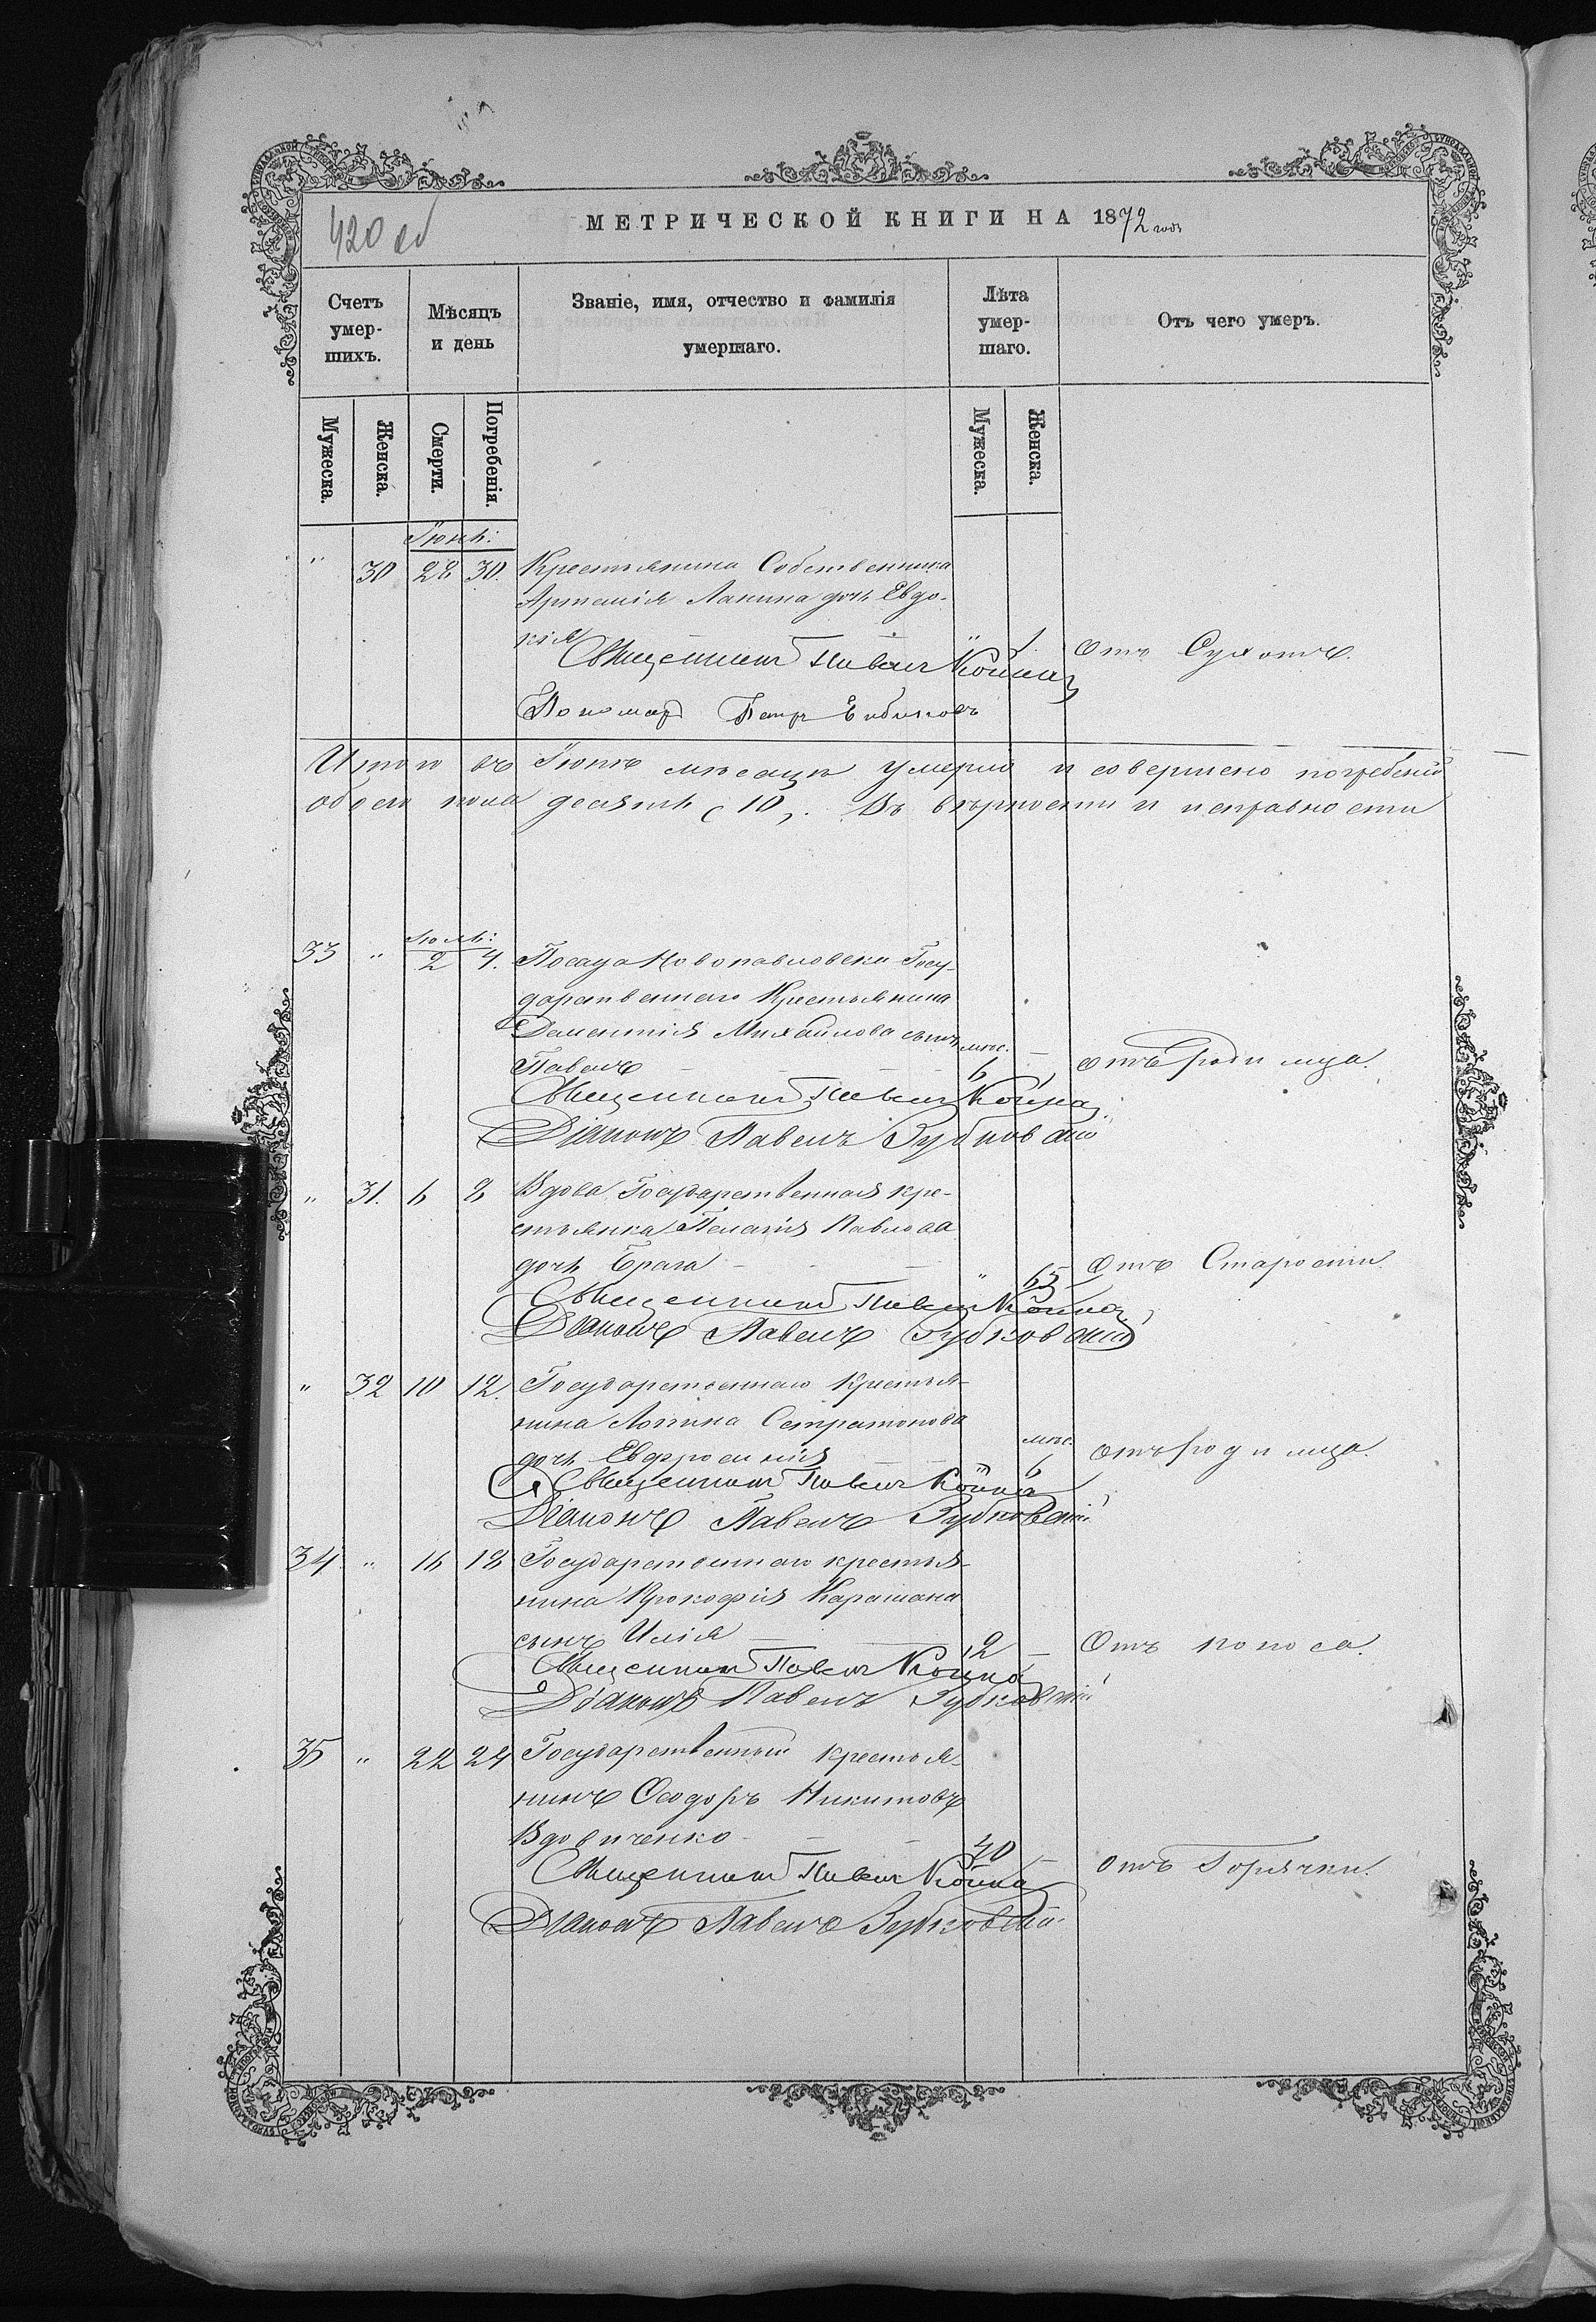 420 об
МЕТРИЧЕСКОЙ КНИГИ НА 1872 годъ
Счетъ умер-шихъ.
Мѣсяцъ и день
Званіе, имя, отчество и фамилія умершаго.
Лѣта умер-шаго.
Отъ чего умеръ.
Мужеска.
Женска.
Смерти.
Погребенія.
Мужеска.
Женска.
Іюнь:
" 30 28 30. Крестьянина Собственника
Артемія Лапина дочь Евдо-
кія " 1. Отъ Сухотъ.
Священникъ Павелъ Койка
Пономарь Петръ
Итого въ Іюнѣ мѣсяцѣ умерло и совершено погребеній
обоего пола десять (10). Въ вѣрности и исправности
Іюль:
33 " 2 4. Посада Новопавловска Госу-
дарственнаго Крестьянина
Дементія Михайлова сынъ мѣс.
Павелъ 6 отъ родимца.
Священникъ Павелъ Койка
Діаконъ Павелъ Зубковскій
" 31. 6 8 Вдова Государственная кре-
стьянка Пелагія Павлова
дочь Брага " 65 Отъ Старости.
Священникъ Павелъ Койка
Діаконъ Павелъ Зубковскій
" 32 10 12. Государственнаго Крестья-
нина Логина Стратонова мѣс.
дочь Евфросинія " 6 отъ родимца.
Священникъ Павелъ Койка
Діаконъ Павелъ Зубковскій
34 " 16 18 Государственнаго крестья-
нина Прокофія Карамана
сынъ Илія 2 Отъ поноса.
Священникъ Павелъ Койка
Діаконъ Павелъ Зубковскій
35 " 22 24 Государственный крестья-
нинъ Ѳеодоръ Никитовъ
Вдовиченко 40 отъ Горячки.
Священникъ Павелъ Койка
Діаконъ Павелъ Зубковскій